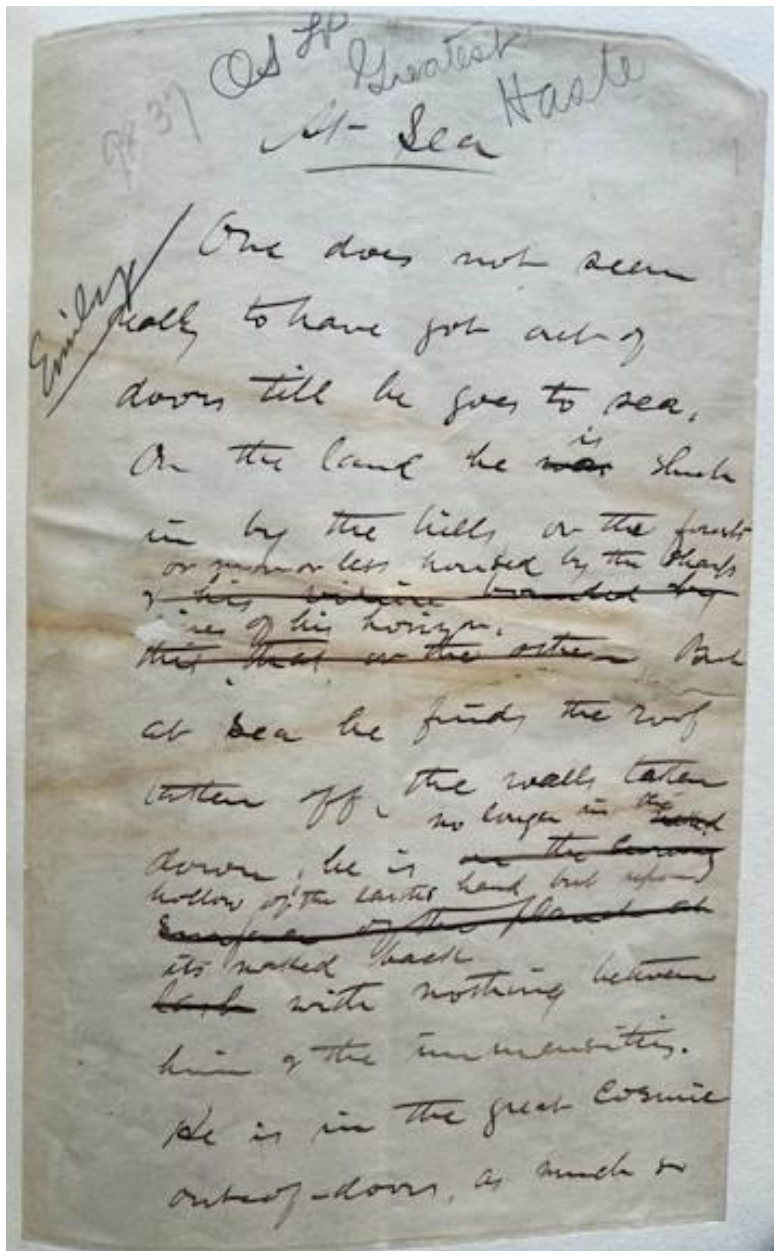 OS LP Greatest Haste
At Sea
Emily
One does not seem
really to have got out of
doors till he goes to sea.
On the land he was is shut
in by the hills or the forests
or more or less housed by the sharp
& his bounded by
lines of his horizon.
this, that or the other But
at sea he finds the roof
taken off, the walls taken
no longer in the
down, he is on the
hollow of the earths hand, but upon
surface of the planet
its naked back
with nothing between
him & the immensities.
He is in the great Cosmic
out-of-doors, as much so